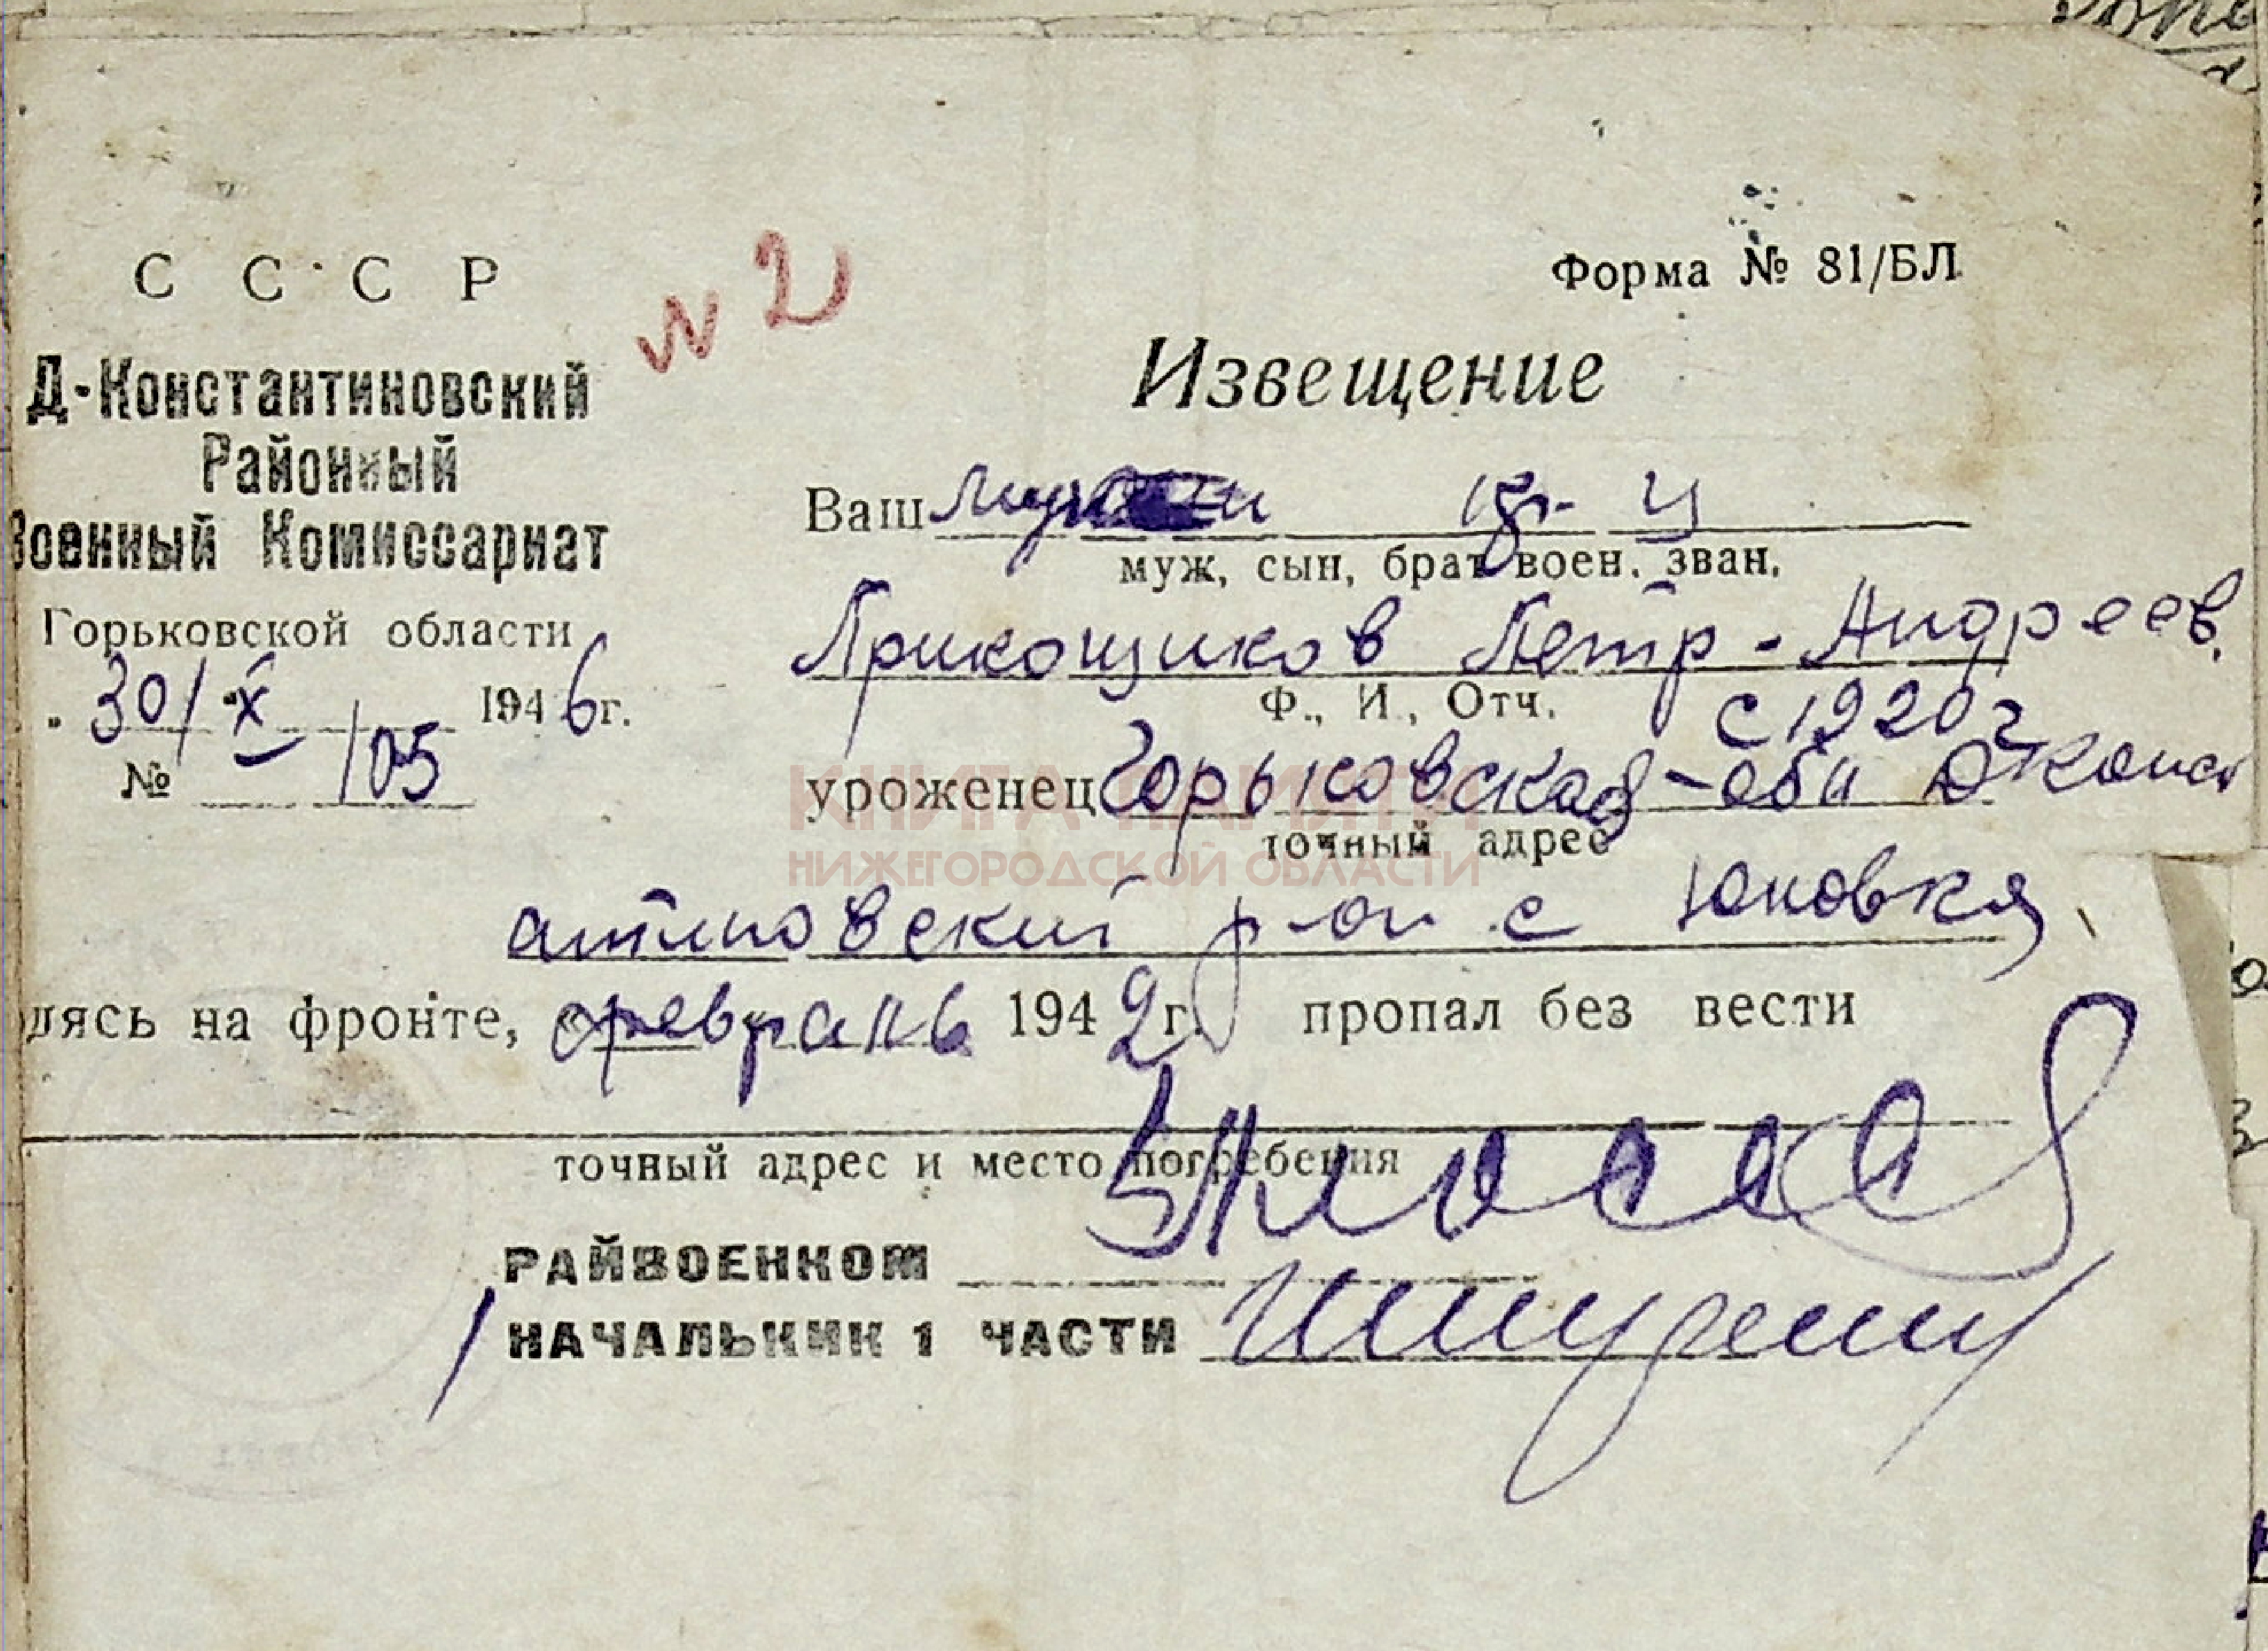 С С С Р
N 2
Форма № 81/БЛ
Д-Константиновский
Районный
Военный Комиссариат
Горьковской области
30/X 1946г.
№ 105
Извещение
Ваш муж кр-ц
муж, сын, брат воен. зван.
Прикощиков Петр-Андреев.
Ф., И., Отч.
с 1920г
уроженец Горьковская-обл Д Конст
точный адрес
антиновский р-он с Юновка
дясь на фронте, февраль 1942г. пропал без вести
точный адрес и место погребения
РАЙВОЕНКОМ
НАЧАЛЬНИК 1 ЧАСТИ
КНИГА ПАМЯТИ
НИЖЕГОРОДСКОЙ ОБЛАСТИ